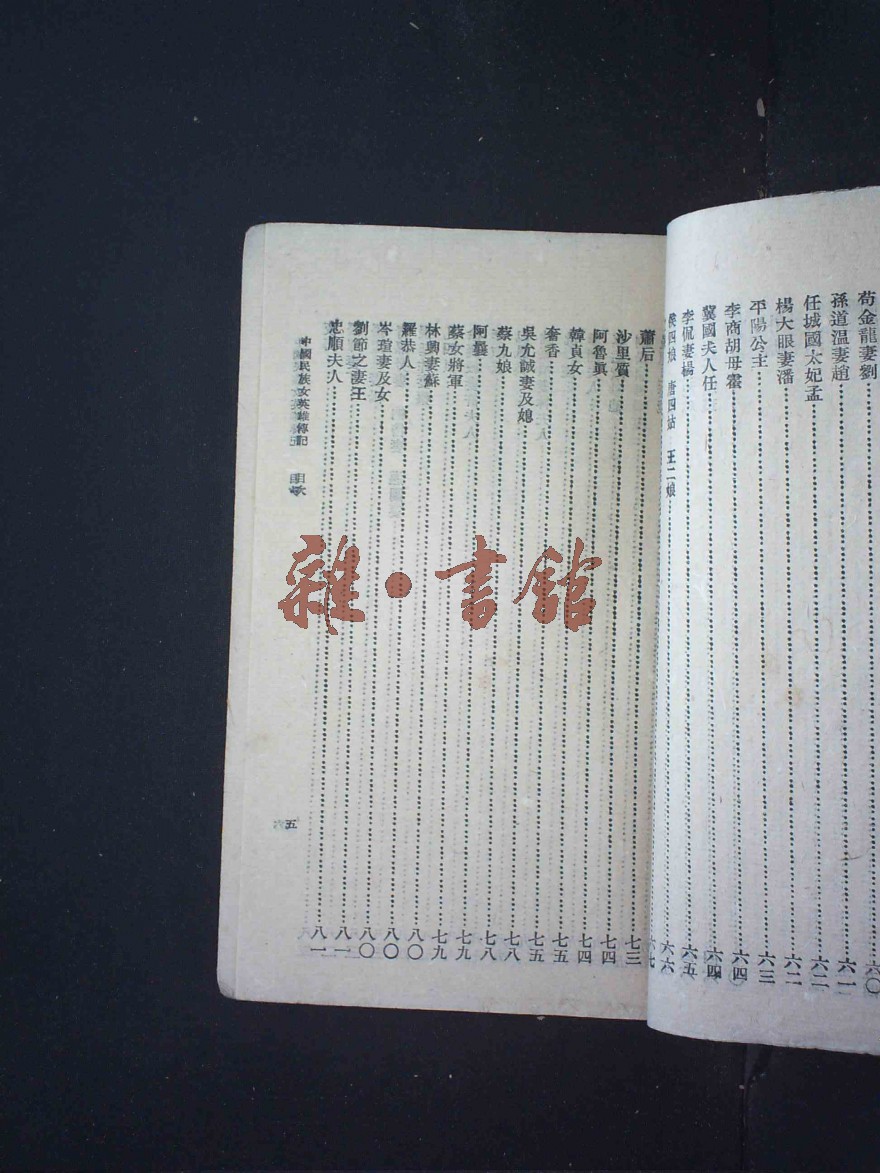 荀金龍妻劉 六〇
孫道溫妻趙 六一
任城國太妃孟 六二
楊大眼妻潘 六二
平陽公主 六三
李商胡母霍 六四
冀國夫人任 六四
李侃妻楊 六五
侯四娘 唐四姑 王二娘 六六
蕭后 六七
沙里質 七三
阿魯眞 七四
韓貞女 七四
奢香 七五
吳尤誠妻及媳 七五
蔡九娘 七八
阿曩 七八
蔡女將軍 七九
林興妻蘇 七九
羅恭人 八〇
岑瑄妻及女 八〇
劉節之妻王 八〇
忠順夫人 八一
八一
中國民族女英雄傳記 目次
五
雜·書館